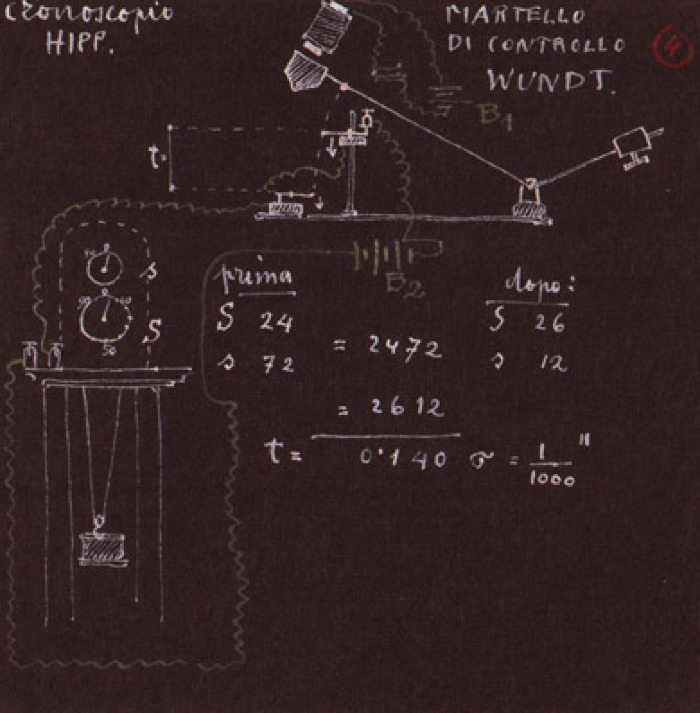 Cronoscopio
HIPP.
MARTELLO
DI CONTROLLO
WUNDT.
4
B1
t=
B2
s
S
50
prima
S 24
s 72
= 2472
dopo:
S 26
s 12
= 2612
t = 0·140 σ = 1/1000 "